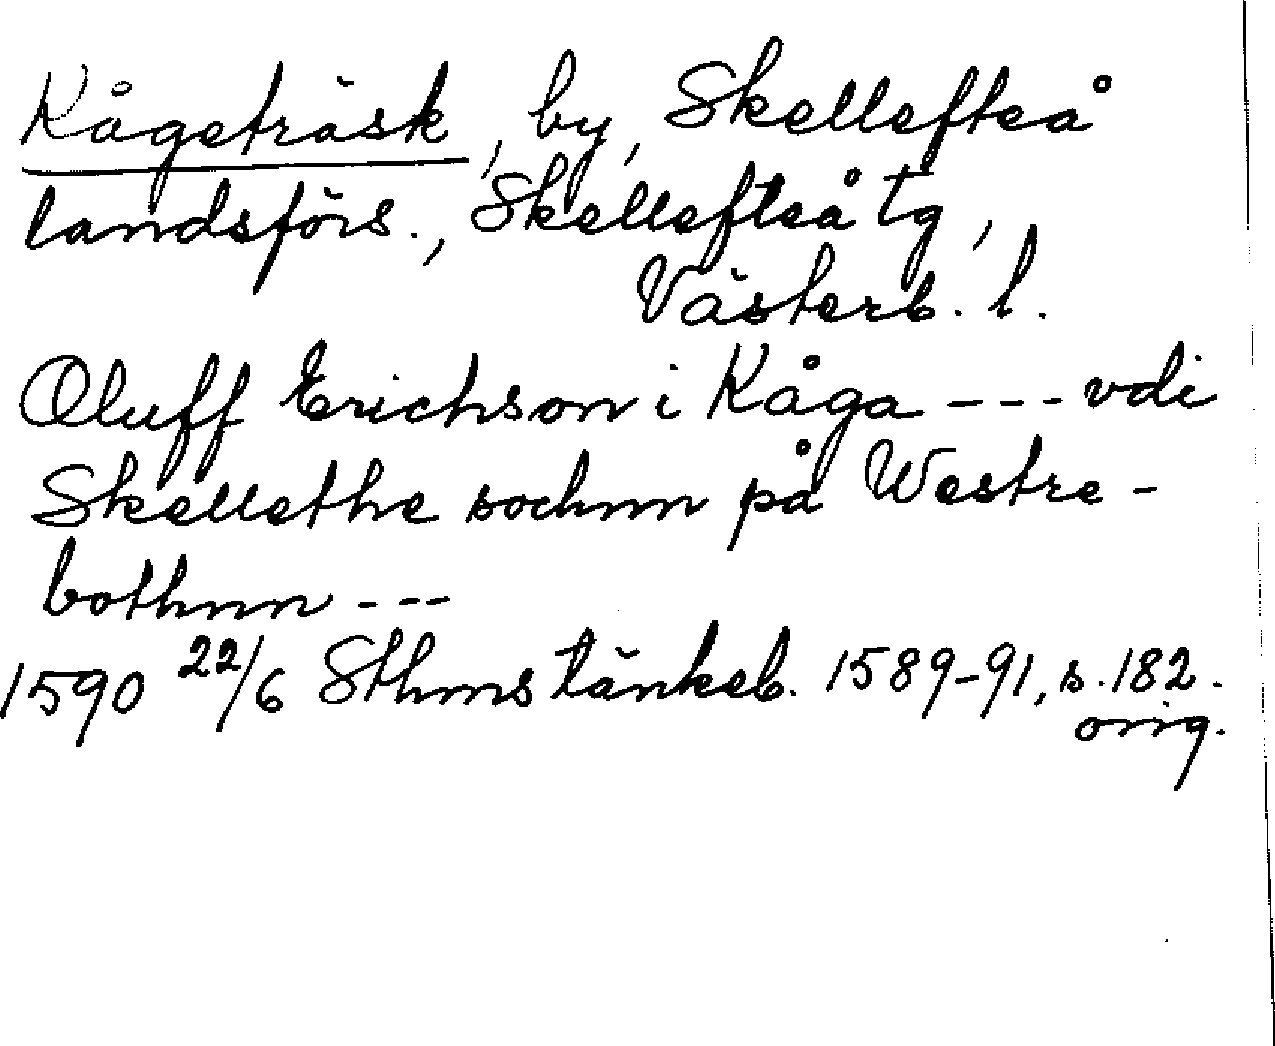 Kågeträsk, by, Skellefteå
landsförs., Skellefteå tg,
Västerb. l.
Oluff Erichson i Kåga --- vdi
Skellethe sochnn på Westre-
bothnn ---
1590 22/6 Sthms tänkeb. 1589-91, s. 182.
orig.